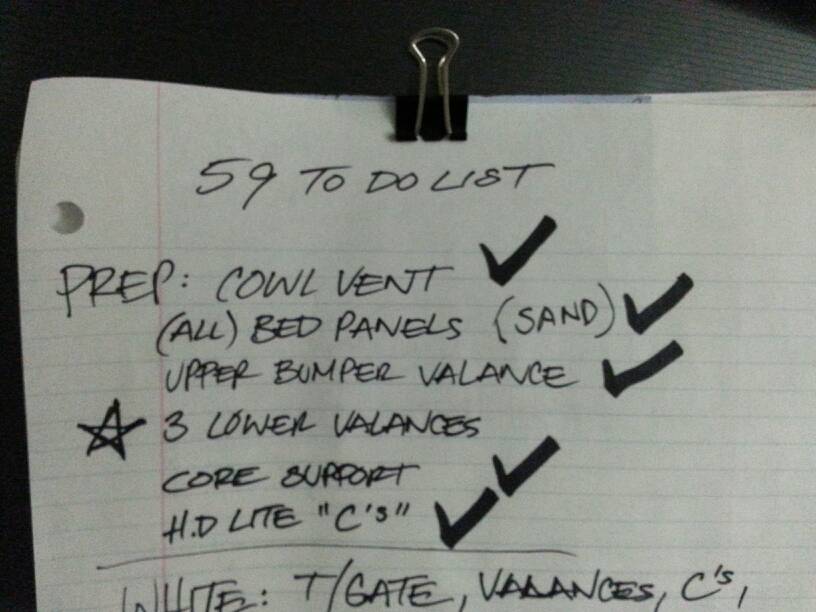 59 TO DO LIST
PREP: COWL VENT
(ALL) BED PANELS (SAND)
UPPER BUMPER VALANCE
3 LOWER VALANCES
CORE SUPPORT
H.D LITE "C's"
WHITE: T/GATE, VALANCES, C's,